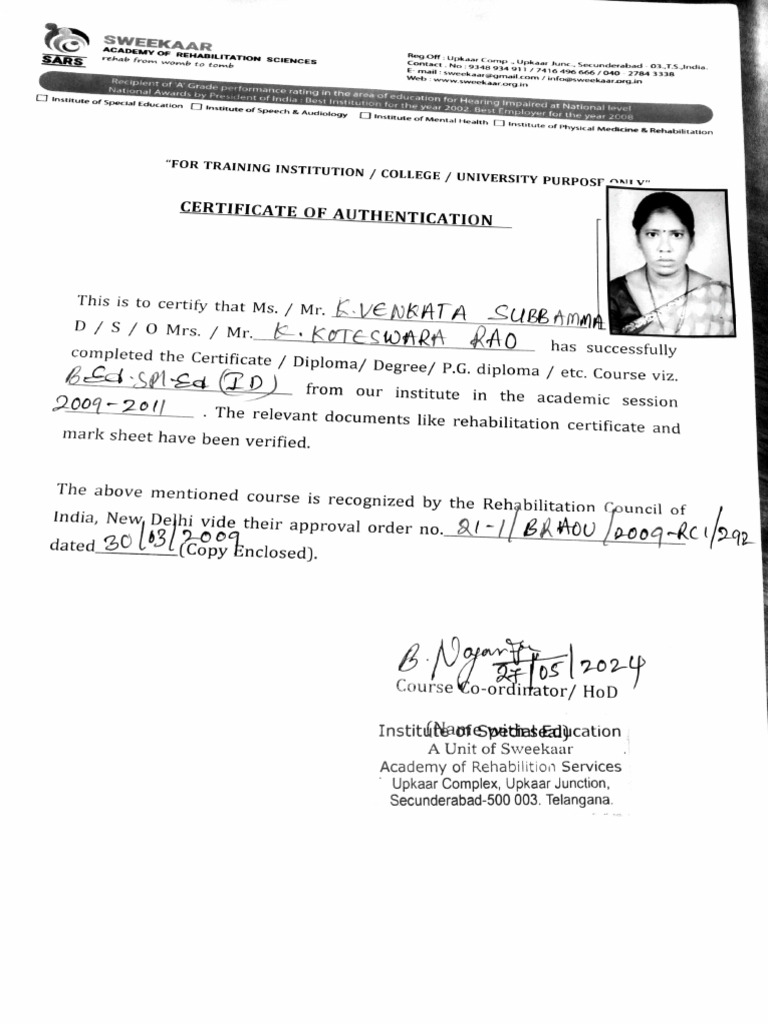 SWEEKAAR
ACADEMY OF REHABILITATION SCIENCES
rehab from womb to tomb
SARS
Reg Off : Upkaar Comp., Upkaar Junc., Secunderabad - 03.,T.S.,India.
Contact . No : 9348 934 911 / 7416 496 666 / 040 - 2784 3338
E- mail : sweekaar@gmail.com / info@sweekaar.org.in
Web : www.sweekaar.org.in
Recipient of 'A' Grade performance rating in the area of education for Hearing Impaired at National level
National Awards by President of India : Best Institution for the year 2002. Best Employer for the year 2008
Institute of Special Education Institute of Speech & Audiology Institute of Mental Health Institute of Physical Medicine & Rehabilitation
"FOR TRAINING INSTITUTION / COLLEGE / UNIVERSITY PURPOSE ONLY"
CERTIFICATE OF AUTHENTICATION
This is to certify that Ms. / Mr. K.VENKATA SUBBAMMA
D / S / O Mrs. / Mr. K. KOTESWARA RAO has successfully
completed the Certificate / Diploma/ Degree/ P.G. diploma / etc. Course viz.
B.Ed.Spl.Ed (ID) from our institute in the academic session
2009-2011 . The relevant documents like rehabilitation certificate and
mark sheet have been verified.
The above mentioned course is recognized by the Rehabilitation Council of
India, New Delhi vide their approval order no. 21-1/BRAOU/2009-RCI/292
dated 30/03/2009 (Copy Enclosed).
27/05/2024
Course Co-ordinator/ HoD
(Name with seal)
Institute of Special Education
A Unit of Sweekaar
Academy of Rehabilition Services
Upkaar Complex, Upkaar Junction,
Secunderabad-500 003. Telangana.